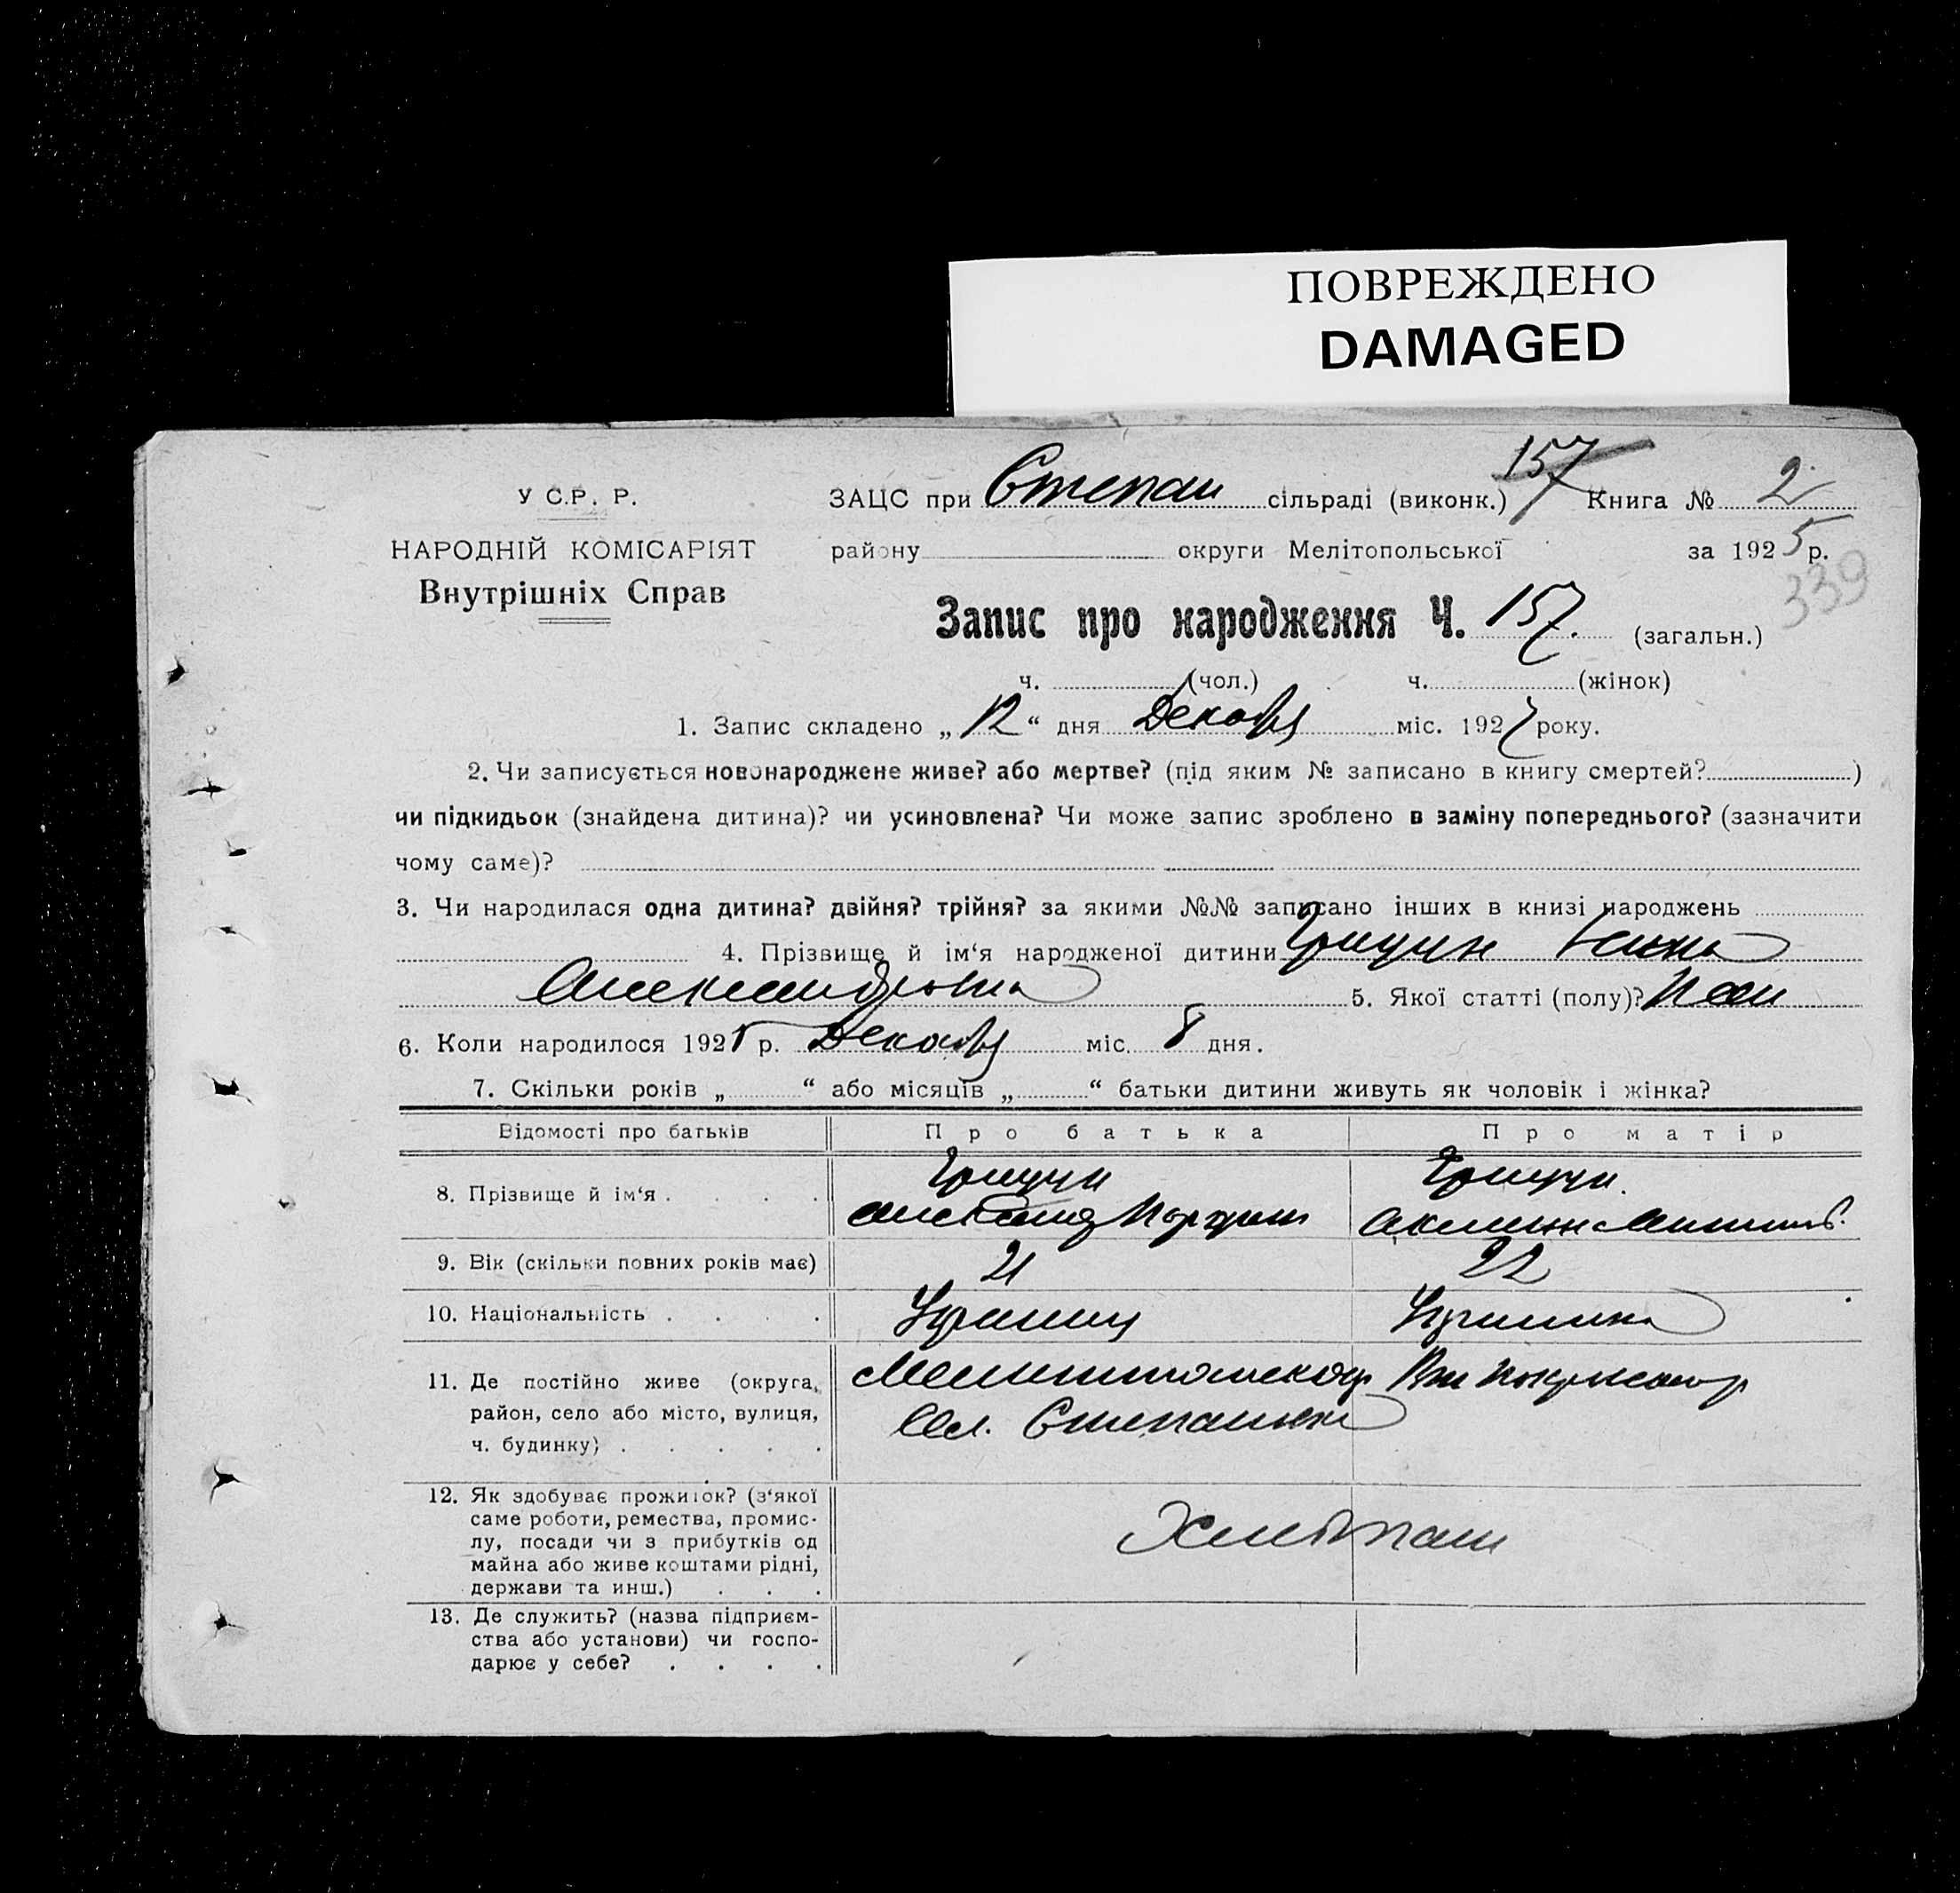 ПОВРЕЖДЕНО
DAMAGED
157
У С.Р. Р. ЗАЦС при Степан сільраді (виконк.) Книга № 2
НАРОДНІЙ КОМІСАРІЯТ району округи Мелітопольської за 1925 р.
339
Внутрішніх Справ
Запис про народження Ч. 157. (загальн.)
ч. (чол.) ч. (жінок)
1. Запис складено „12“ дня Декабр міс. 192 року.
2. Чи записується новонароджене живе? або мертве? (під яким № записано в книгу смертей? )
чи підкидьок (знайдена дитина)? чи усиновлена? Чи може запис зроблено в заміну попереднього? (зазначити
чому саме)?
3. Чи народилася одна дитина? двійня? трійня? за якими №№ записано інших в книзі народжень
4. Прізвище й ім‘я народженої дитини
Александровна 5. Якої статті (полу)?
6. Коли народилося 192 р. Декабр міс. 8 дня.
7. Скільки років „ “ або місяців „ “ батьки дитини живуть як чоловік і жінка?
Відомості про батьків Про батька Про матір
8. Прізвище й ім‘я . . . .
9. Вік (скільки повних років має) 21 22
10. Національність . . . . Украинец Украинка
11. Де постійно живе (округа,
район, село або місто, вулиця,
ч. будинку) . . . . . Сел. Степановка
12. Як здобуває прожиток? (з‘якої
саме роботи, ремества, промис-
лу, посади чи з прибутків од
майна або живе коштами рідні,
держави та инш.) . . . Хлебопаш
13. Де служить? (назва підприєм-
ства або установи) чи госпо-
дарює у себе? . . . .